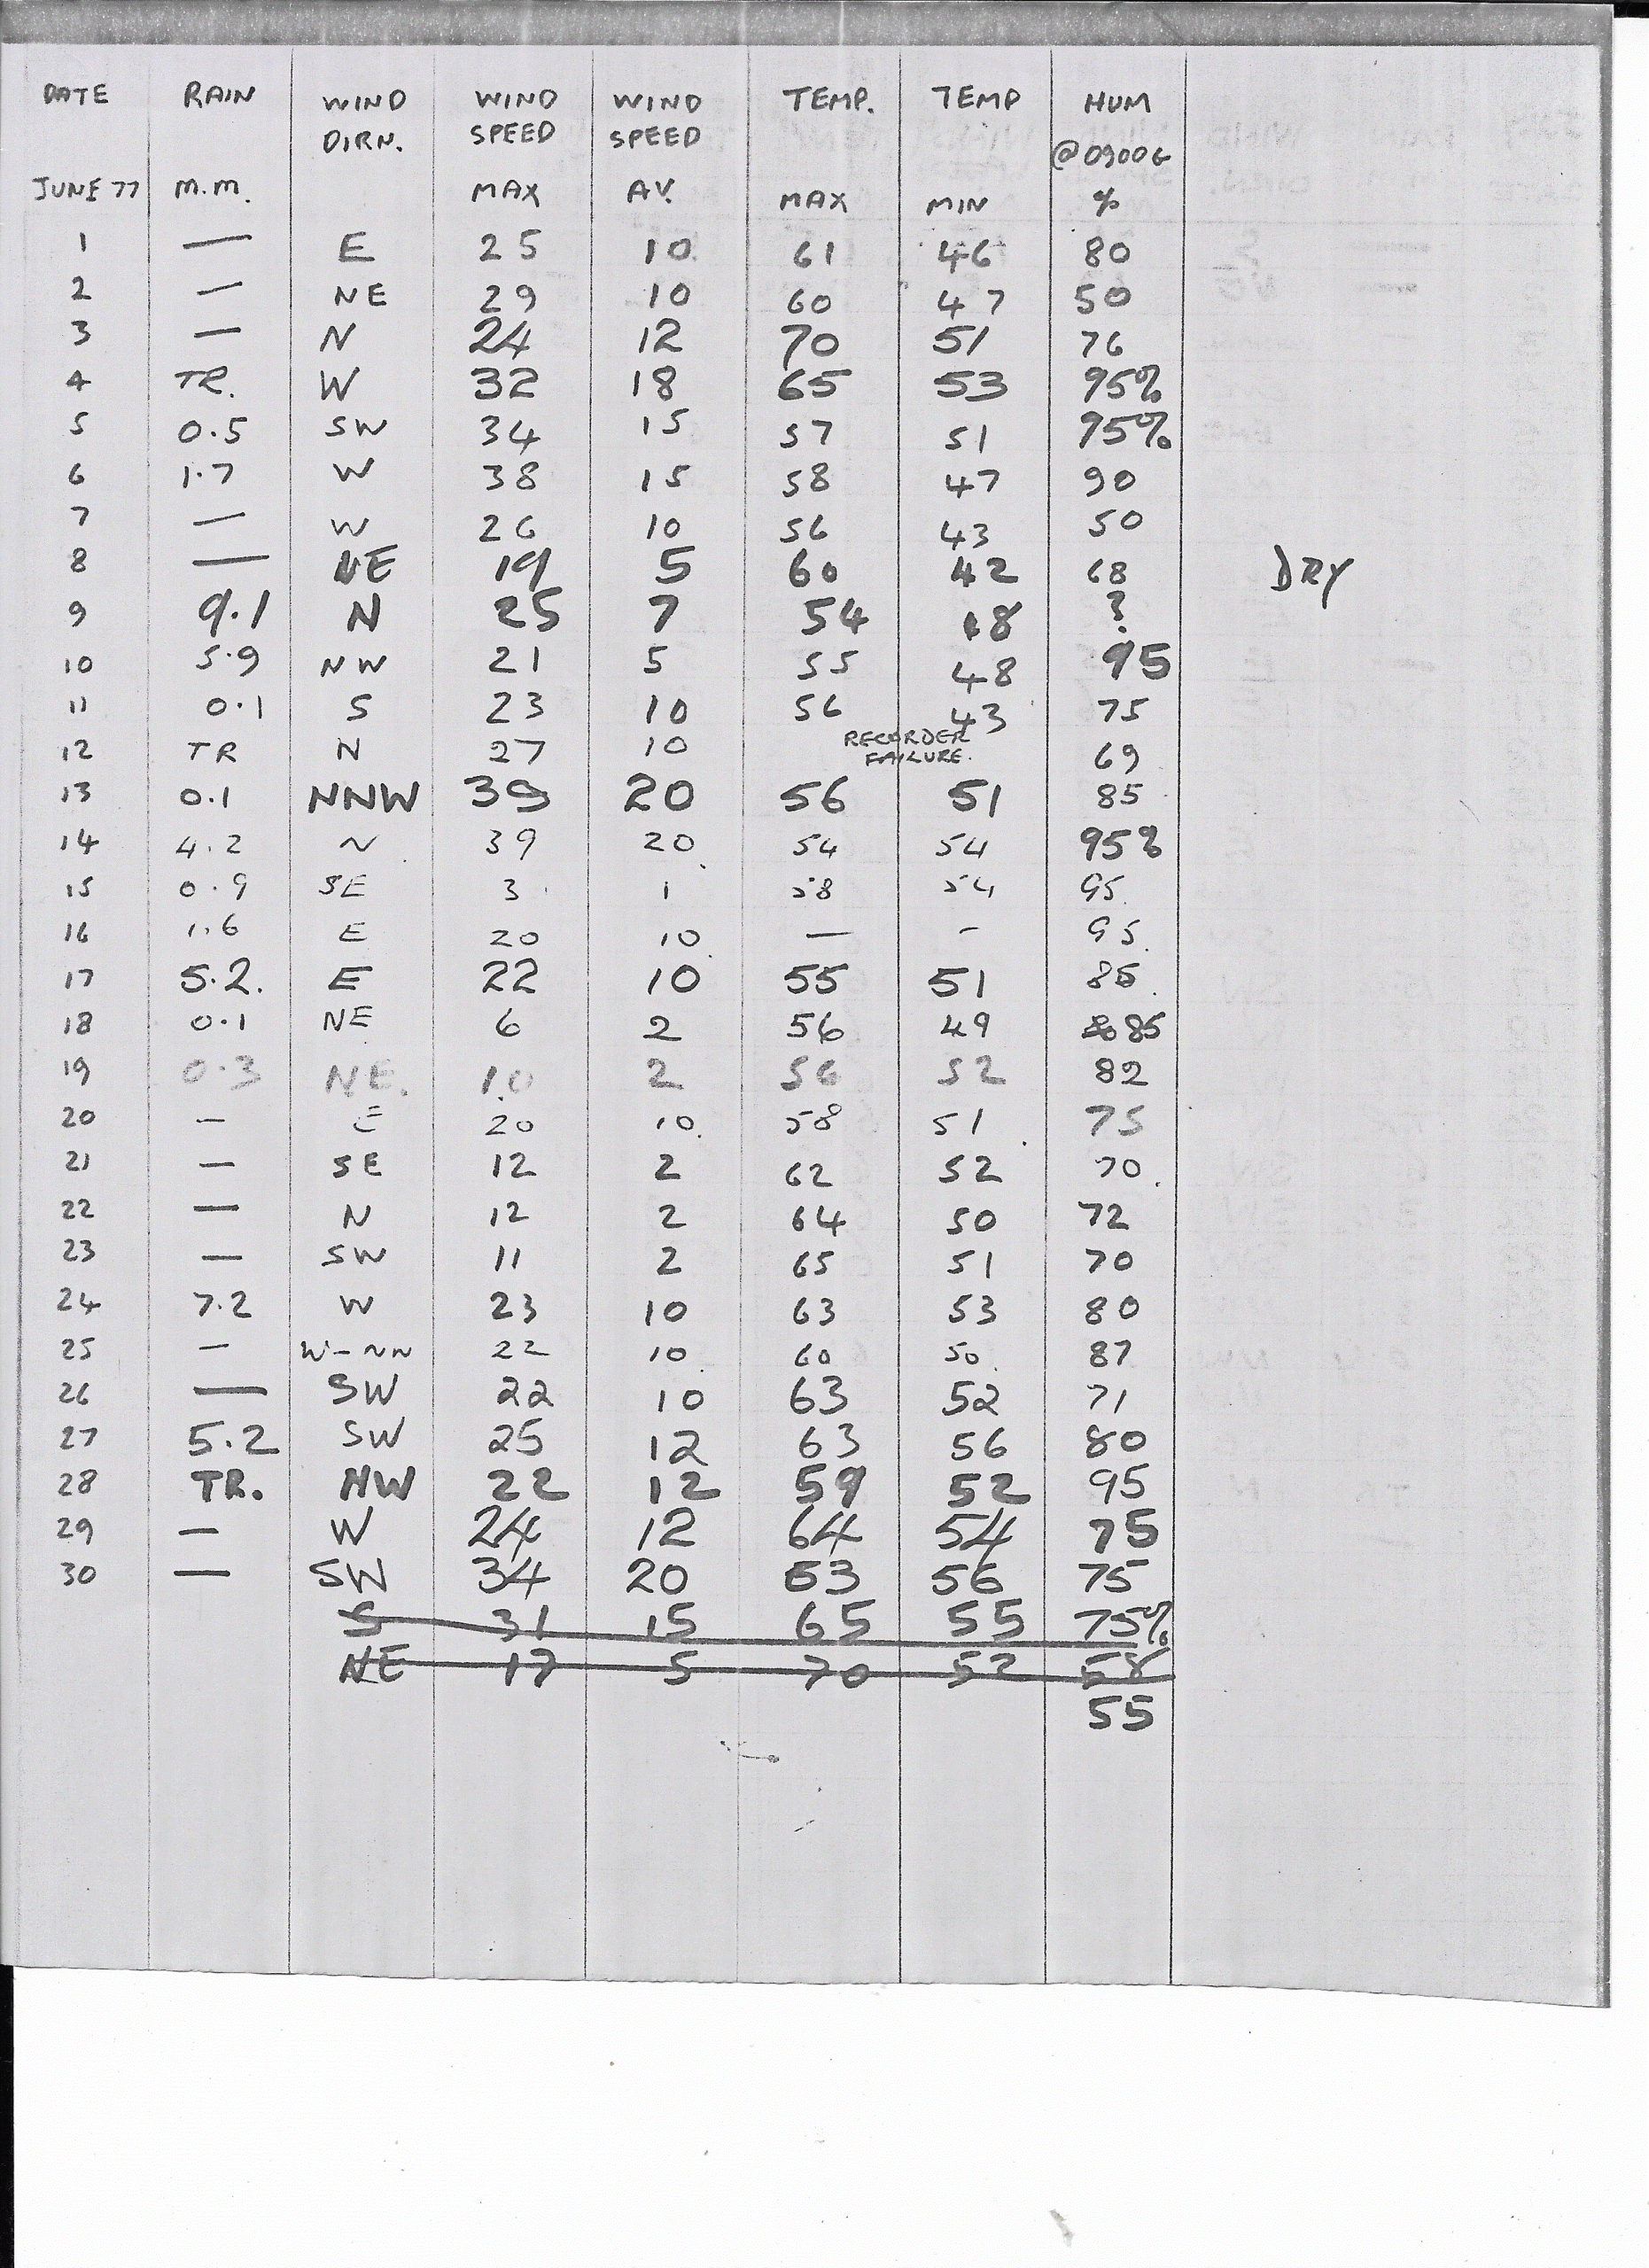 DATE RAIN WIND DIRN. WIND SPEED WIND SPEED TEMP. TEMP HUM @0900G
JUNE 77 M.M. MAX AV. MAX MIN %
1 — E 25 10 61 46 80
2 — NE 29 10 60 47 50
3 — N 24 12 70 51 76
4 TR. W 32 18 65 53 95%
5 0.5 SW 34 15 57 51 95%
6 1.7 W 38 15 58 47 90
7 — W 26 10 56 43 50
8 — NE 19 5 60 42 68 DRY
9 9.1 N 25 7 54 48 ?
10 5.9 NW 21 5 55 48 95
11 0.1 S 23 10 56 43 75
12 TR N 27 10 RECORDER FAILURE. 69
13 0.1 NNW 39 20 56 51 85
14 4.2 N 39 20 54 54 95%
15 0.9 SE 3 1 58 54 95
16 1.6 E 20 10 — - 95
17 5.2. E 22 10 55 51 85
18 0.1 NE 6 2 56 49 85
19 0.3 NE. 10 2 56 52 82
20 — E 20 10 58 51 75
21 — SE 12 2 62 52 70
22 — N 12 2 64 50 72
23 — SW 11 2 65 51 70
24 7.2 W 23 10 63 53 80
25 — W-NN 22 10 60 50 87
26 — SW 22 10 63 52 71
27 5.2 SW 25 12 63 56 80
28 TR. NW 22 12 59 52 95
29 — W 24 12 64 54 75
30 — SW 34 20 63 56 75
S 31 15 65 55 75%
NE 17 5 70 52 58
55